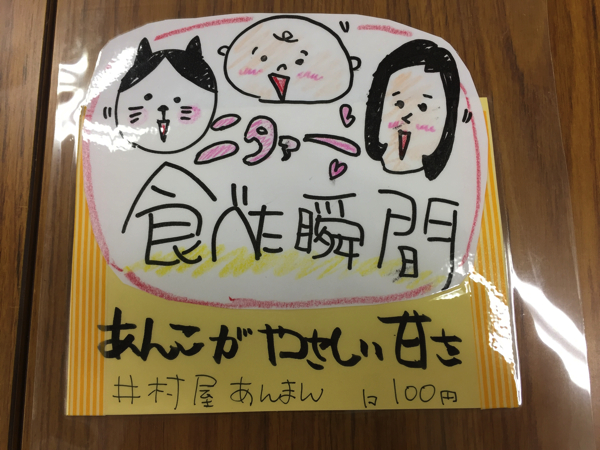 ニタァー
食べた瞬間
あんこがやさしい甘さ
井村屋あんまん 1コ 100円